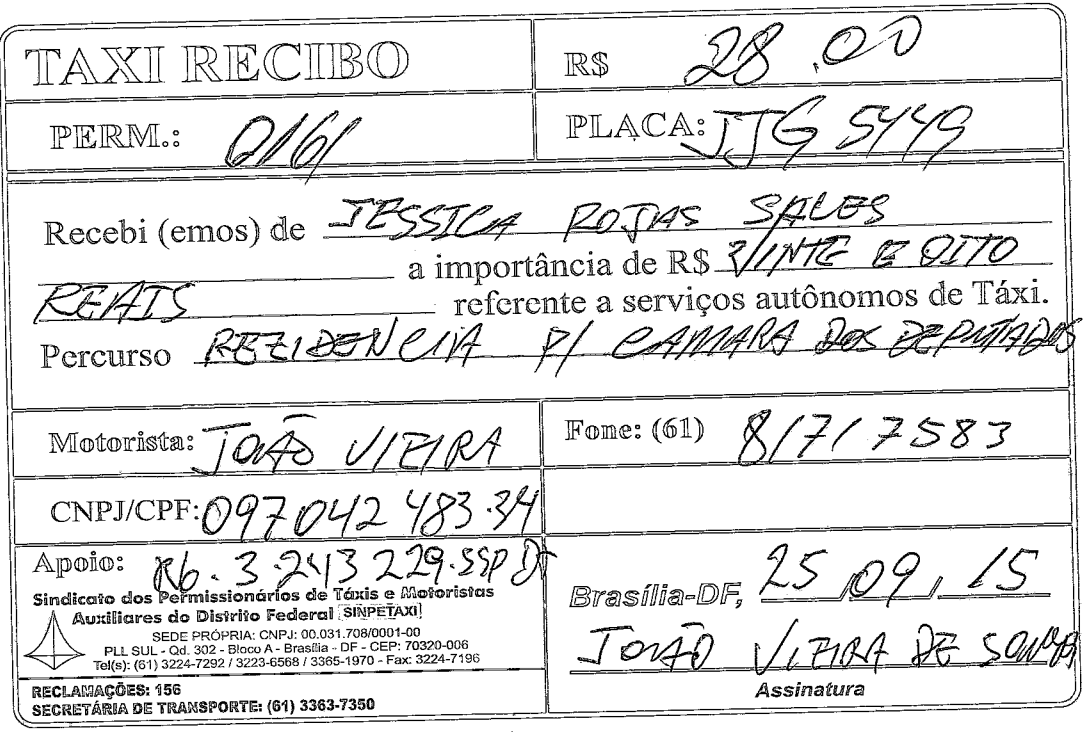 TAXI RECIBO
R$ 28,00
PERM.: 0161
PLACA: JJG 5449
Recebi (emos) de JESSICA ROJAS SALES
a importância de R$ VINTE E OITO
REAIS referente a serviços autônomos de Táxi.
Percurso REZIDENCIA P/ CAMARA DOS DEPUTADOS
Motorista: JOÃO VIEIRA
Fone: (61) 8171 7583
CNPJ/CPF: 097042 483.34
Apoio: RG. 3.243 229.SSP DF
Sindicato dos Permissionários de Táxis e Motoristas
Auxiliares do Distrito Federal SINPETAXI
SEDE PRÓPRIA: CNPJ: 00.031.708/0001-00
PLL SUL - Qd. 302 - Bloco A - Brasília - DF - CEP: 70320-006
Tel(s): (61) 3224-7292 / 3223-6568 / 3365-1970 - Fax: 3224-7196
RECLAMAÇÕES: 156
SECRETÁRIA DE TRANSPORTE: (61) 3363-7350
Brasília-DF, 25/09/15
JOÃO VIEIRA DE SOUSA
Assinatura